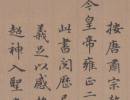 按唐肅宗乾
今皇帝雍正二
此書閱歷
義足以感
超神入聖